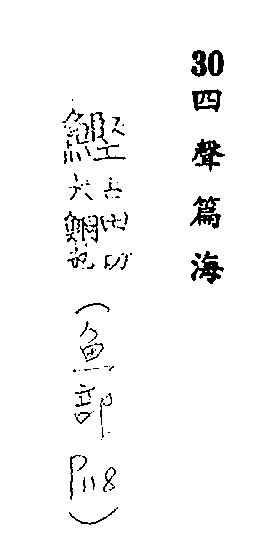 30四聲篇海
鰹
古田切
大鮦也
(魚部 P118)